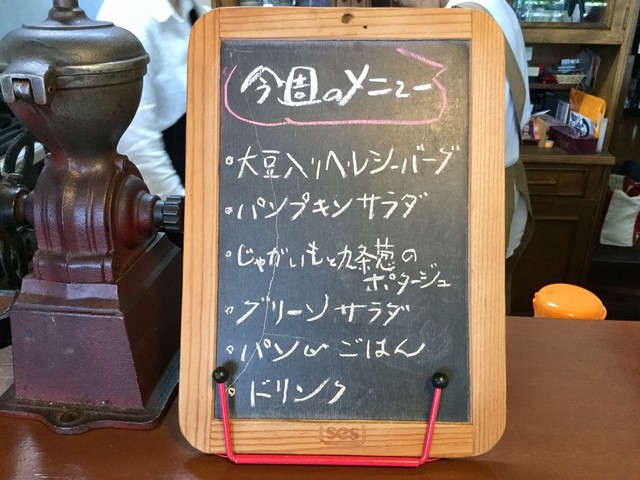 今週のメニュー
大豆入りヘルシーバーグ
パンプキンサラダ
じゃがいもと九条葱の
ポタージュ
グリーンサラダ
パンorごはん
ドリンク
ses